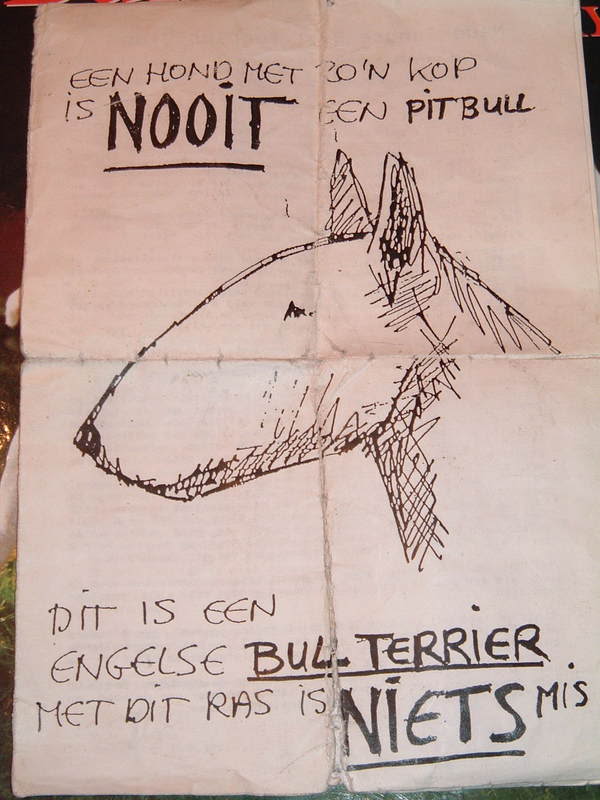 EEN HOND MET ZO'N KOP
IS NOOIT EEN PITBULL
DIT IS EEN
ENGELSE BULL TERRIER
MET DIT RAS IS NIETS MIS